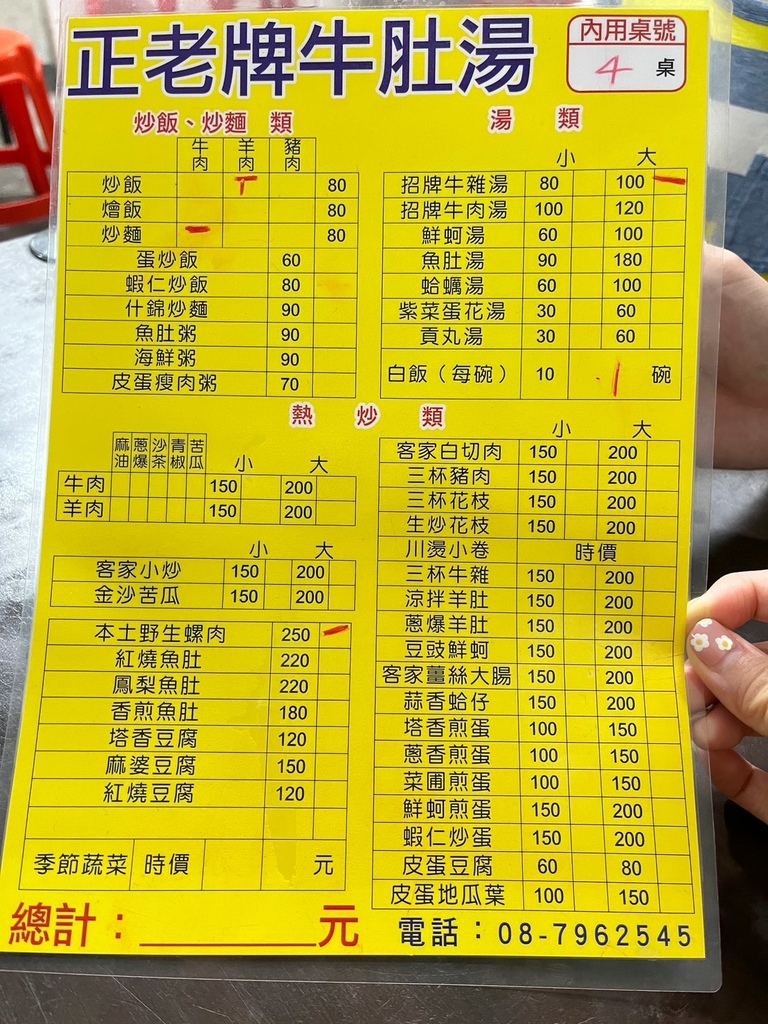 正老牌牛肚湯
內用桌號
4 桌
炒飯、炒麵 類
牛肉 羊肉 豬肉
炒飯 T 80
燴飯 80
炒麵 一 80
蛋炒飯 60
蝦仁炒飯 80
什錦炒麵 90
魚肚粥 90
海鮮粥 90
皮蛋瘦肉粥 70
湯 類
小 大
招牌牛雜湯 80 100 一
招牌牛肉湯 100 120
鮮蚵湯 60 100
魚肚湯 90 180
蛤蠣湯 60 100
紫菜蛋花湯 30 60
貢丸湯 30 60
白飯（每碗） 10 1 碗
熱 炒 類
麻油 蔥爆 沙茶 青椒 苦瓜 小 大
牛肉 150 200
羊肉 150 200
小 大
客家小炒 150 200
金沙苦瓜 150 200
本土野生螺肉 250 一
紅燒魚肚 220
鳳梨魚肚 220
香煎魚肚 180
塔香豆腐 120
麻婆豆腐 150
紅燒豆腐 120
季節蔬菜 時價 元
小 大
客家白切肉 150 200
三杯豬肉 150 200
三杯花枝 150 200
生炒花枝 150 200
川燙小卷 時價
三杯牛雜 150 200
涼拌羊肚 150 200
蔥爆羊肚 150 200
豆豉鮮蚵 150 200
客家薑絲大腸 150 200
蒜香蛤仔 150 200
塔香煎蛋 100 150
蔥香煎蛋 100 150
菜圃煎蛋 100 150
鮮蚵煎蛋 150 200
蝦仁炒蛋 150 200
皮蛋豆腐 60 80
皮蛋地瓜葉 100 150
總計：________元
電話：08-7962545